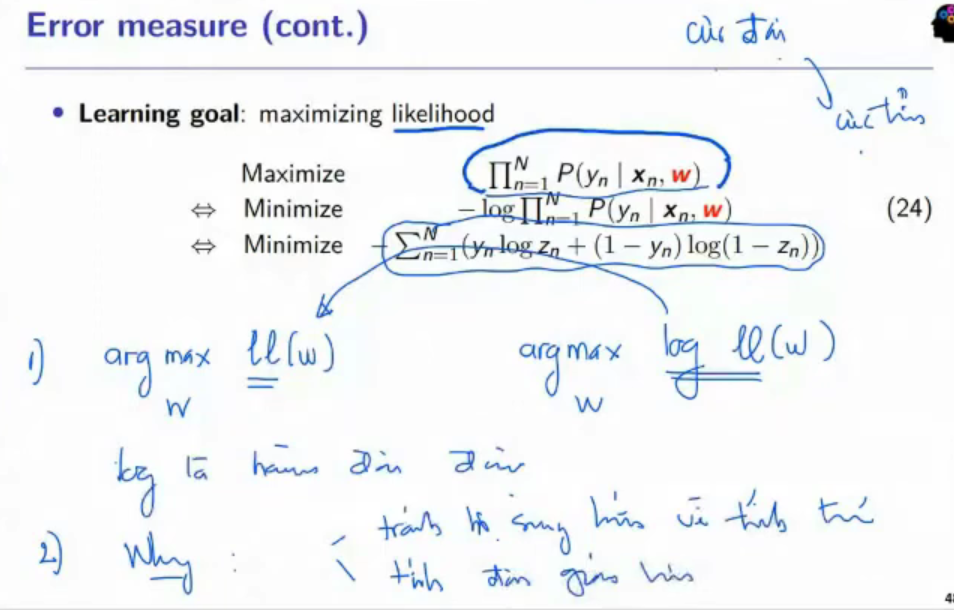 Error measure (cont.)
cực đại
cực tiểu
• Learning goal: maximizing likelihood
Maximize ∏ₙ₌₁ᴺ P(yₙ | xₙ, w)
⇔ Minimize − log ∏ₙ₌₁ᴺ P(yₙ | xₙ, w) (24)
⇔ Minimize − ∑ₙ₌₁ᴺ (yₙ log zₙ + (1 − yₙ) log(1 − zₙ))
1) arg max ll(w) arg max log ll(w)
w w
log là hàm đơn điệu
2) Why : tránh bị hơn về tính
tính đơn giản hơn